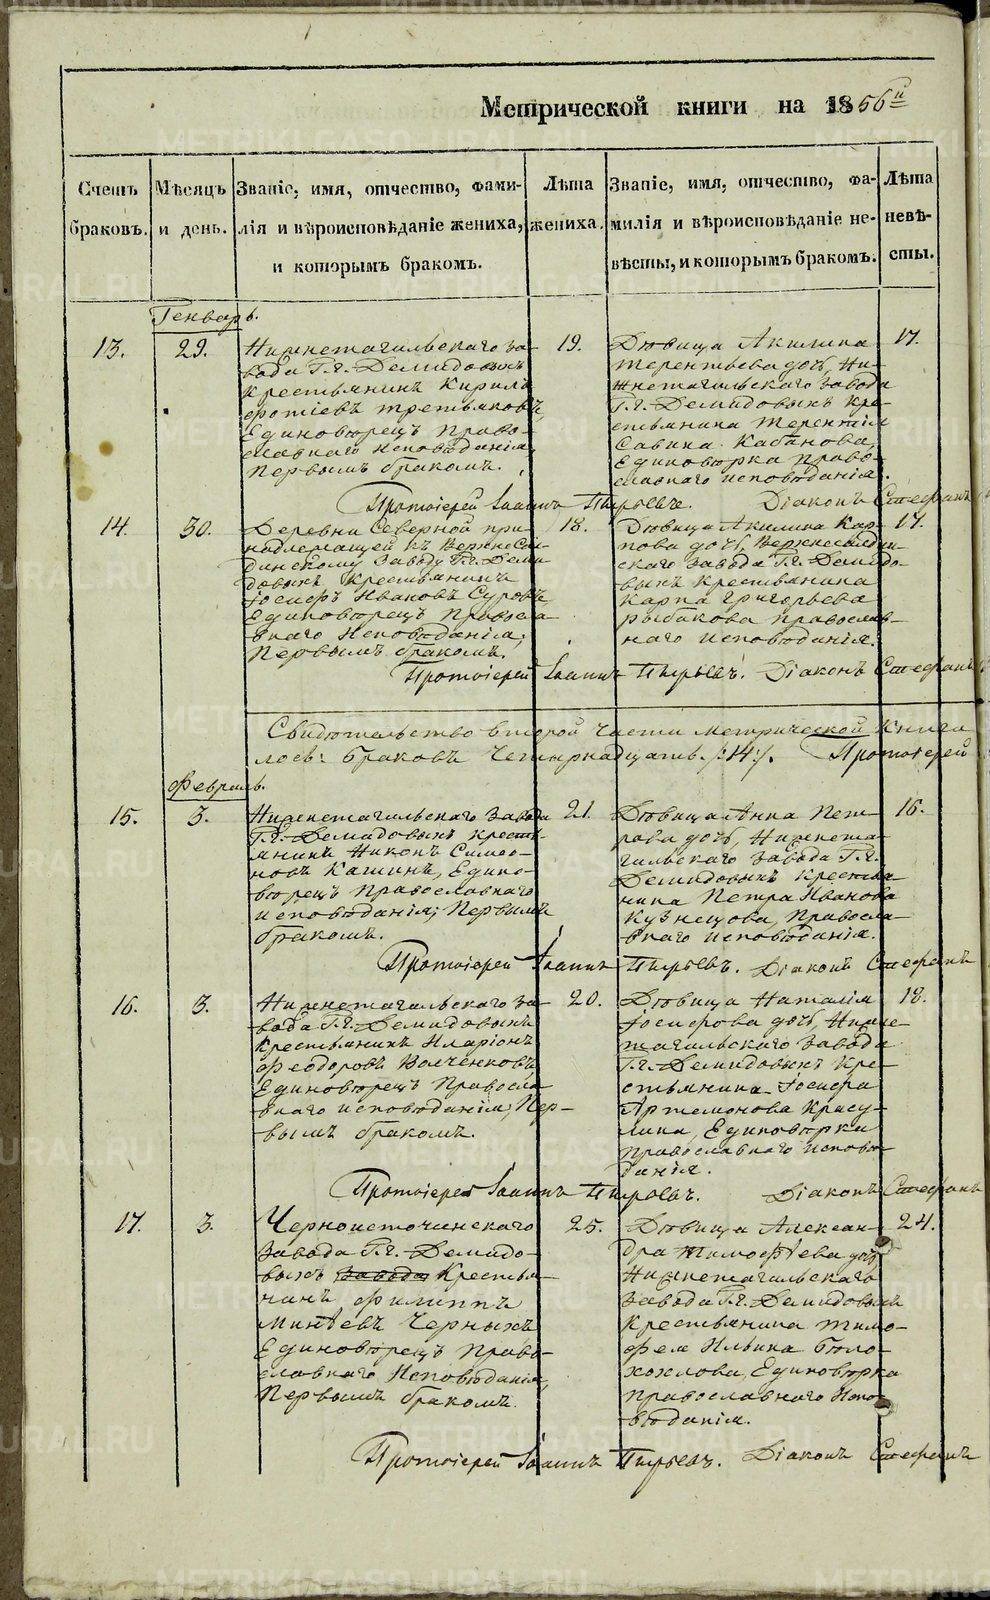 Метрической книги на 1856й
Счетъ браковъ.
Мѣсяцъ и день.
Званіе, имя, отчество, фами-
лія и вѣроисповѣданіе жениха,
и которымъ бракомъ.
Лѣта жениха.
Званіе, имя, отчество, фа-
милія и вѣроисповѣданіе не-
вѣсты, и которымъ бракомъ.
Лѣта невѣ-
сты.
Генварь.
13.
29.
Нижнетагильскаго за-
вода Г.г. Демидовыхъ
Крестьянинъ Кирилъ
Фотіевъ Третьяковъ,
Единовѣрецъ Право-
славнаго Исповѣданія,
Первымъ бракомъ.
19.
Дѣвица Акилина
Терентьева дочь, Ни-
жнетагильскаго Завода
Г.г. Демидовыхъ Кре-
стьянина Терентія
Савина Кабанова,
Единовѣрка право-
славнаго исповѣданія.
17.
Протоіерей Іоаннъ Пырьевъ. Діаконъ Стефанъ
14.
30.
Деревни Северной при-
надлежащей къ Верхнесал-
динскому Заводу Г.г. Деми-
довыхъ Крестьянинъ
Іосифъ Ивановъ Суровъ
Единовѣрецъ Правосла-
внаго Исповѣданія,
Первымъ бракомъ.
18.
Дѣвица Акилина Кар-
пова дочь, Верхнесалдин-
скаго Завода Г.г. Демидо-
выхъ Крестьянина
Карпа Григорьева
Рыбакова православ-
наго исповѣданія.
17.
Протоіерей Іоаннъ Пырьевъ. Діаконъ Стефанъ
Свидѣтельство второй части метрической Книги
браковъ Четырнадцать /:14:/. Протоіерей
Февраль.
15.
3.
Нижнетагильскаго Завода
Г.г. Демидовыхъ кресть-
янинъ Никонъ Симео-
новъ Кашинъ, Едино-
вѣрецъ Православнаго
исповѣданія, Первымъ
бракомъ.
21.
Дѣвица Анна Пет-
рова дочь, Нижнета-
гильскаго Завода Г.г.
Демидовыхъ Крестья-
нина Петра Иванова
Кузнецова, Правосла-
внаго исповѣданія.
16.
Протоіерей Іоаннъ Пырьевъ. Діаконъ Стефанъ
16.
3.
Нижнетагильскаго за-
вода Г.г. Демидовыхъ
Крестьянинъ Иларіонъ
Феодоровъ Волченковъ,
Единовѣрецъ Правосла-
внаго исповѣданія, Пер-
вымъ бракомъ.
20.
Дѣвица Наталія
Іосифова дочь, Нижне-
тагильскаго Завода
Г.г. Демидовыхъ Кре-
стьянина Іосифа
Артемонова Красу-
лина, Единовѣрка
православнаго исповѣ-
данія.
18.
Протоіерей Іоаннъ Пырьевъ. Діаконъ Стефанъ
17.
3.
Черноисточинскаго
Завода Г.г. Демидо-
выхъ Завода Крестья-
нинъ Филиппъ
Минѣевъ Черныхъ
Единовѣрецъ Право-
славнаго Исповѣданія,
Первымъ бракомъ.
25.
Дѣвица Алексан-
дра Тимофѣева дочь
Нижнетагильскаго
Завода Г.г. Демидовыхъ
Крестьянина Тимо-
фея Ильина Бѣло-
хохлова, Единовѣрка
православнаго Испо-
вѣданія.
24.
Протоіерей Іоаннъ Пырьевъ. Діаконъ Стефанъ
METRIKI.GASO-URAL.RU